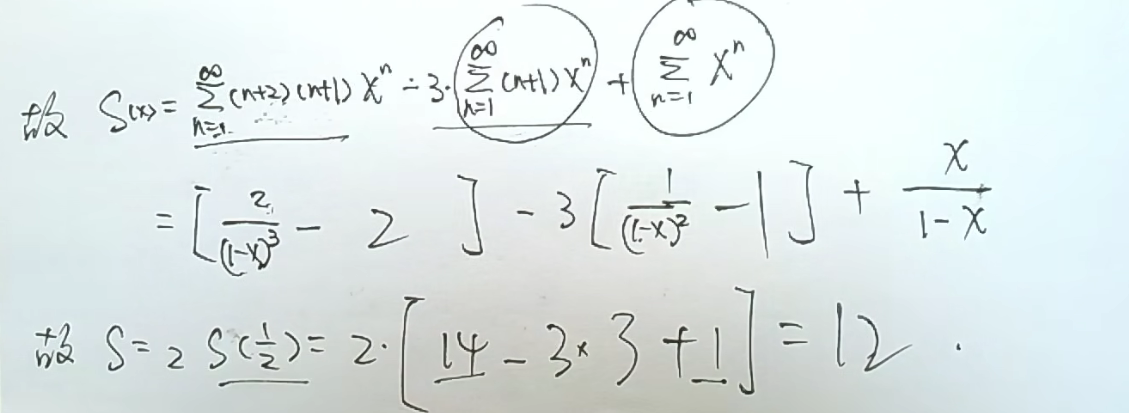 故 S(x) = ∑_{n=1}^{∞} (n+2)(n+1) x^n - 3·∑_{n=1}^{∞} (n+1) x^n + ∑_{n=1}^{∞} x^n
= [ 2/(1-x)^3 - 2 ] - 3 [ 1/(1-x)^2 - 1 ] + x/(1-x)
故 S = 2 S(1/2) = 2·[ 14 - 3×3 + 1 ] = 12 .